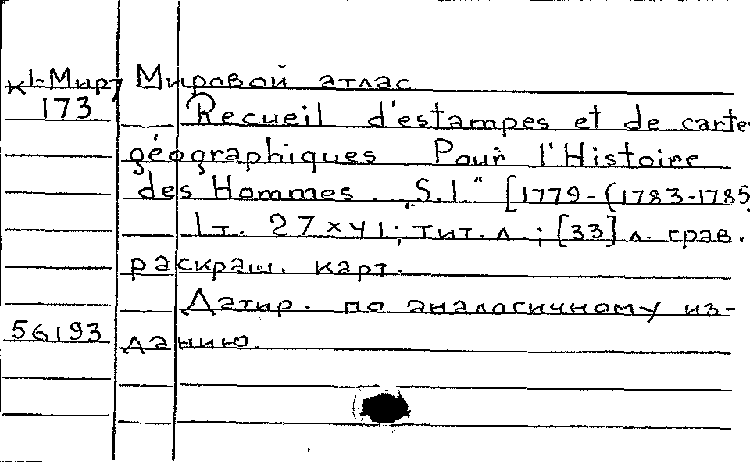 К1-Мир7 Мировой атлас
173 Recueil d'estampes et de carte
géographiques Pour l'Histoire
des Hommes. "S.l" [1779-(1783-1785
1т. 27×41; тит.л; [33] л. грав.
раскраш. карт.
Датир. по аналогичному из-
56193 данию.